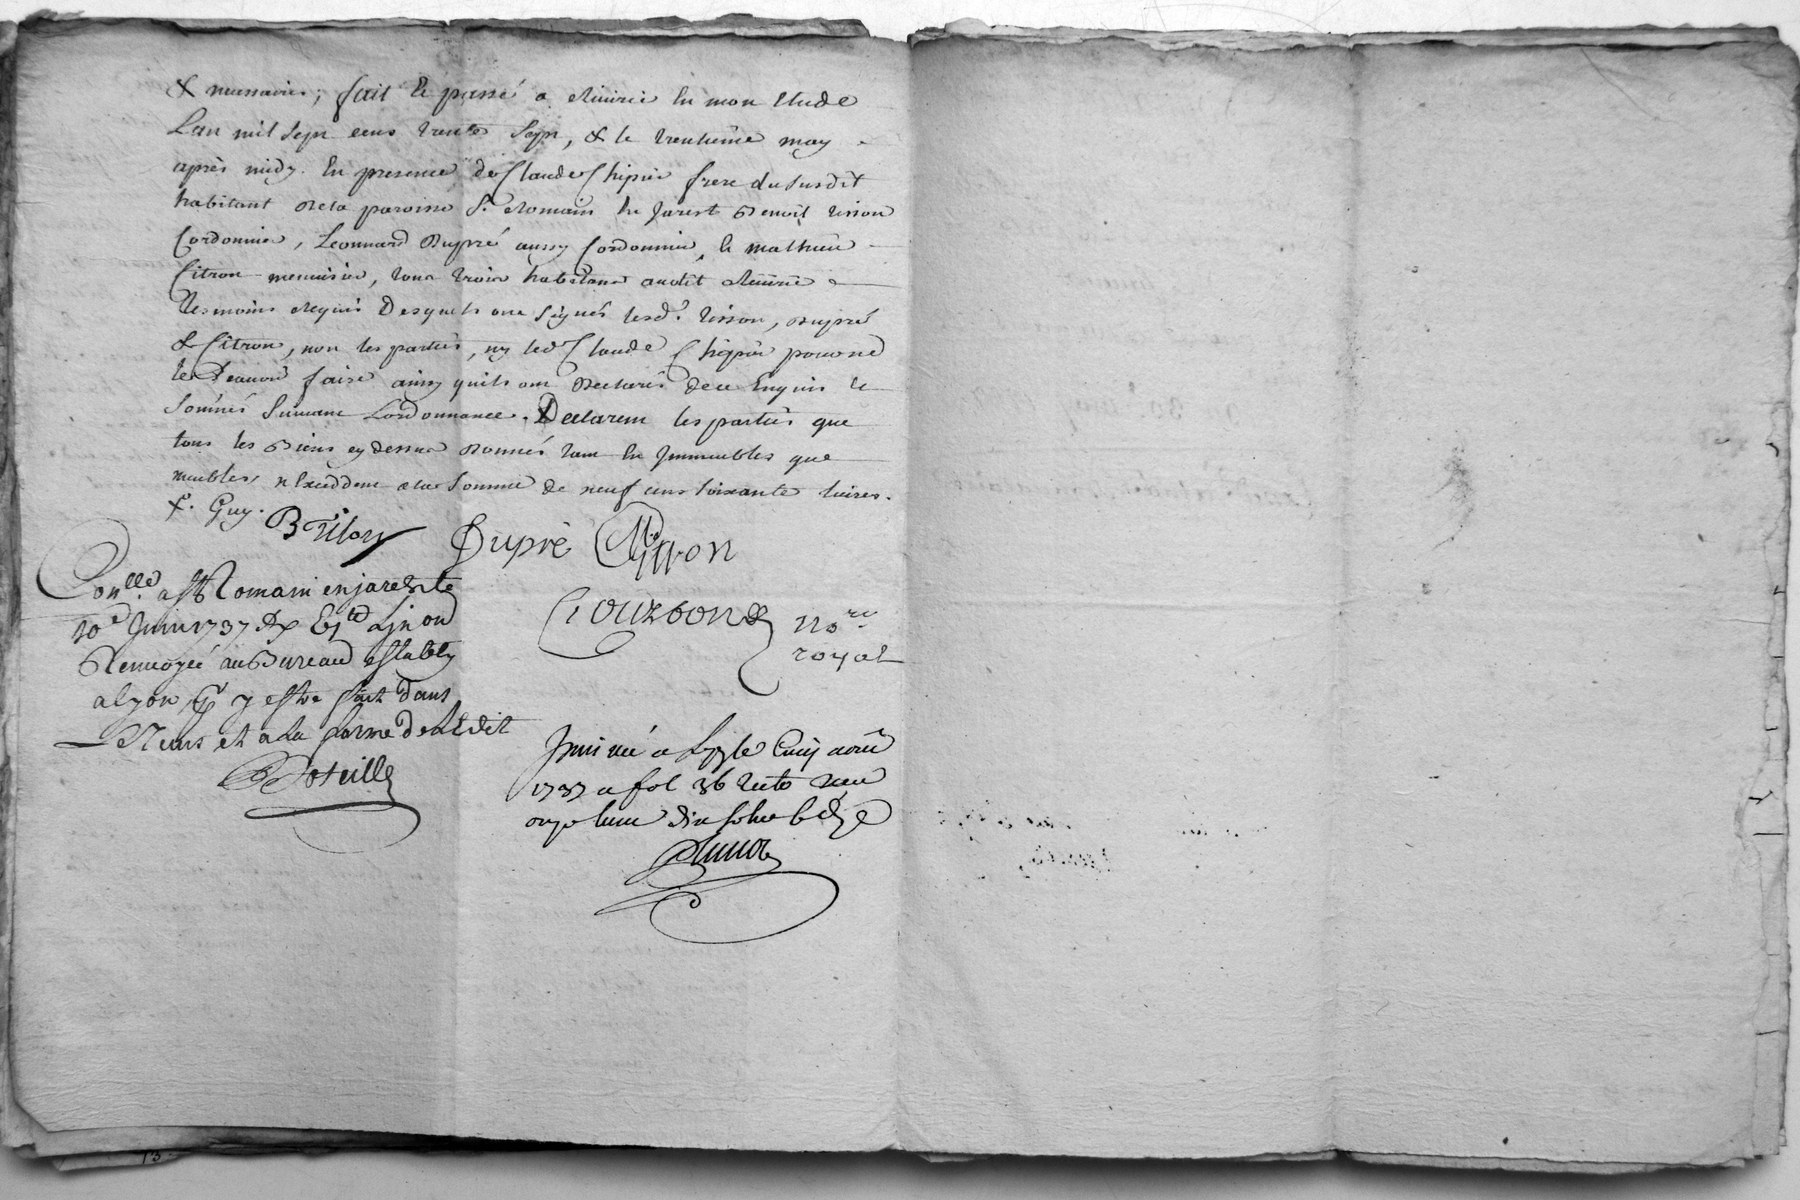 & necessaires; fait & passé a Riverie en mon Etude
Lan mil sept cens trente sept, & le trentieme may
après midy. En presence de Claude Chipier frere du susdit
habitant de la paroisse St Romain en Jarest Benoit tisson
Cordonnier, Leonnard Dupré aussy Cordonnier, & mathieu
Citron menuisier, tous trois habitans audit Riverie
tesmoins requis Desquels ont signés lesd. tisson, Dupré
& Citron, non les parties, ny led Claude Chipier pour ne
le sçavoir faire ainsy quils ont declarés de ce Enquis &
sommés suivant Lordonnance. Declarent les parties que
tous les Biens cy dessus donnés tant en Immeubles que
meubles, n'Exceddent la somme de neuf cens soixante livres.
Dupré
no.re
royal
Con.lle a St Romain en jarest le
10e Juin 1737
Renvoyée au Bureau estably
a lyon, pr y estre fait dans
le tems et a la forme de LEdit
a Lyon le Cinq aout
1737 a fol 36 recto receu
onze livres dix sols